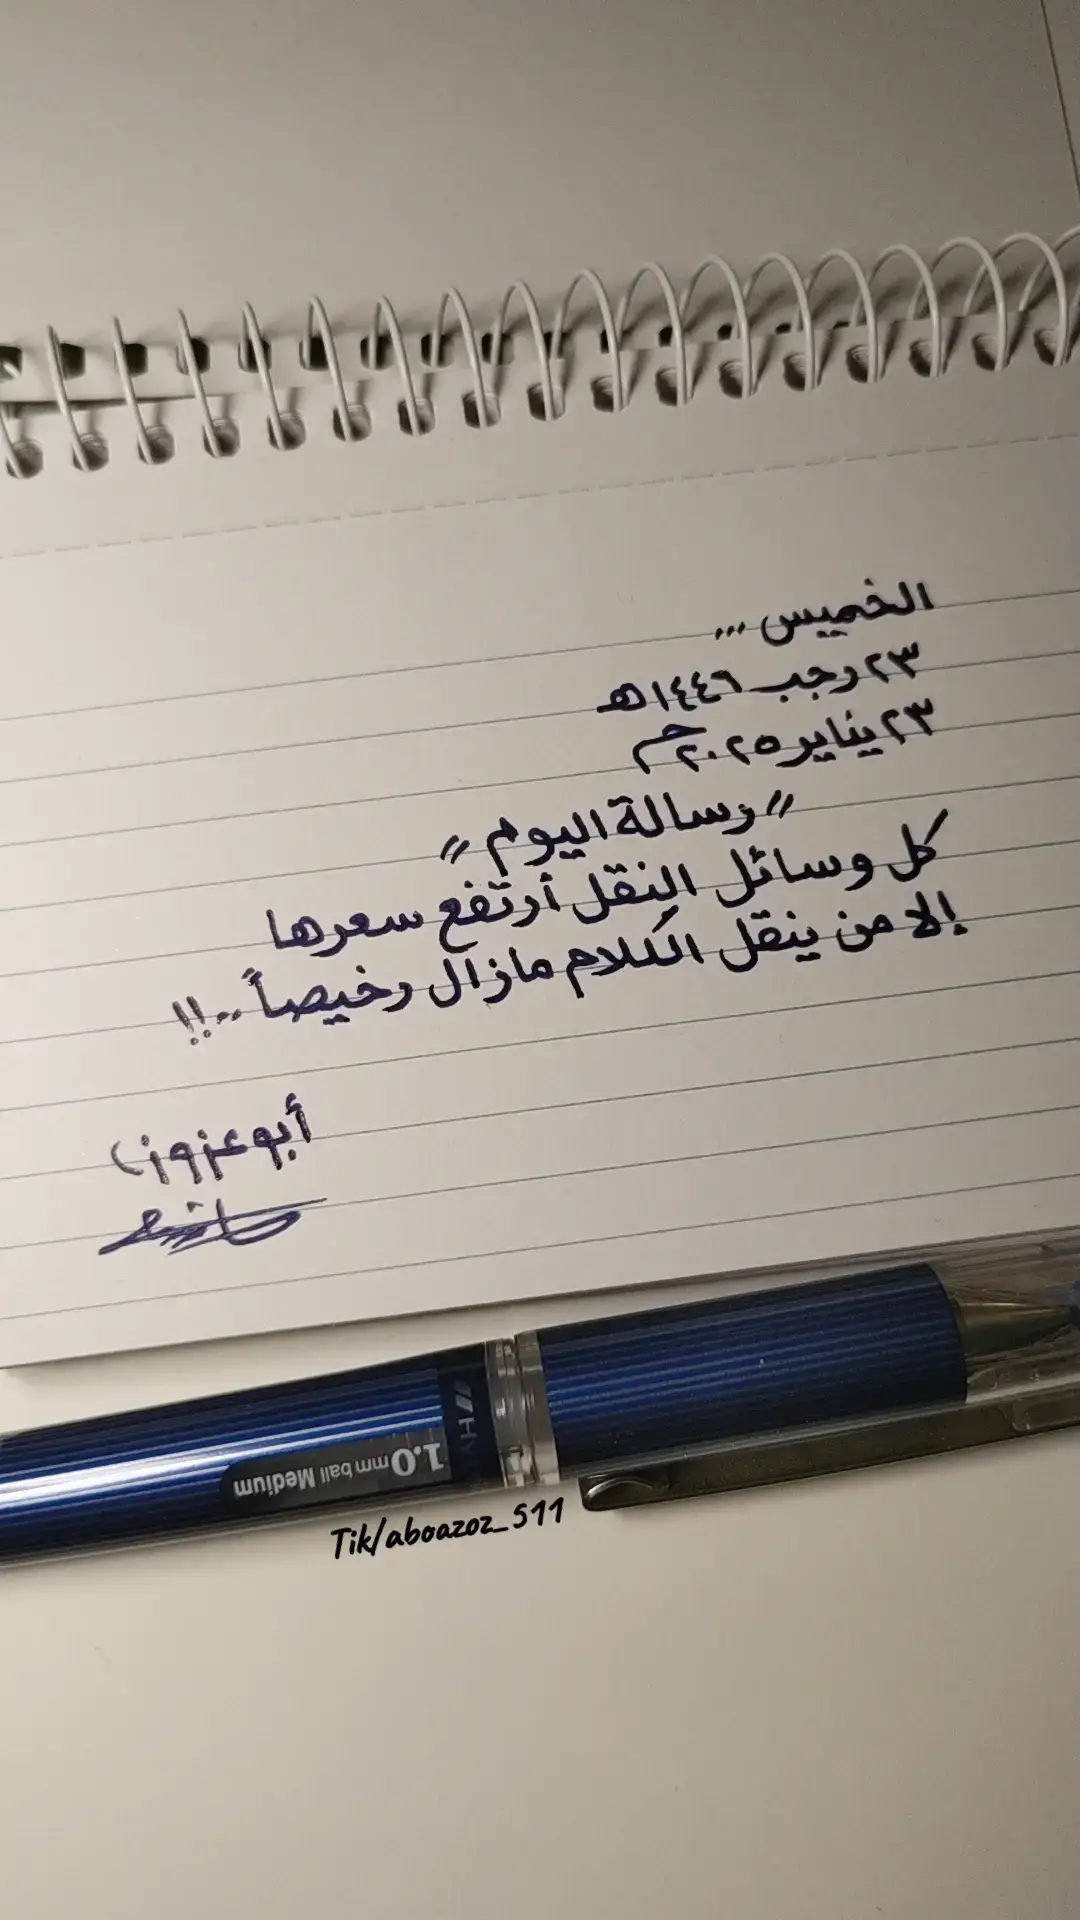 الخميس ...
٢٣ رجب ١٤٤٦هـ
٢٣ يناير ٢٠٢٥م
"رسالة اليوم"
كل وسائل النقل أرتفع سعرها
إلا من ينقل الكلام مازال رخيصاً ..!!
أبوعزوز
1.0 mm ball Medium
Tik/aboazoz_511